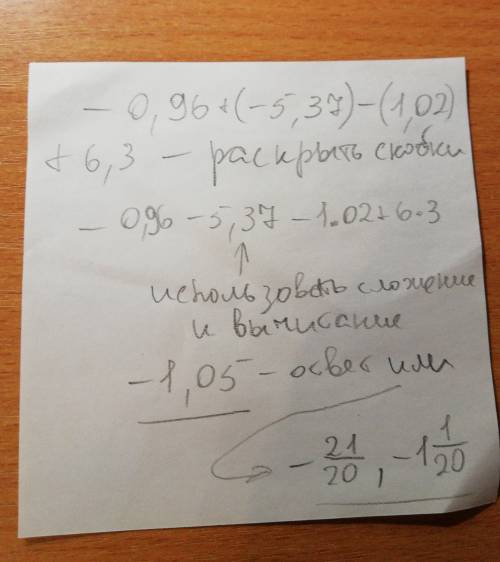 - 0,96+(-5,37)-(1,02)
+ 6,3 - раскрыть скобки
- 0,96 - 5,37 - 1.02+6.3
↑
использовать сложение
и вычисание
-1,05 - освет или
- 21/20, -1 1/20